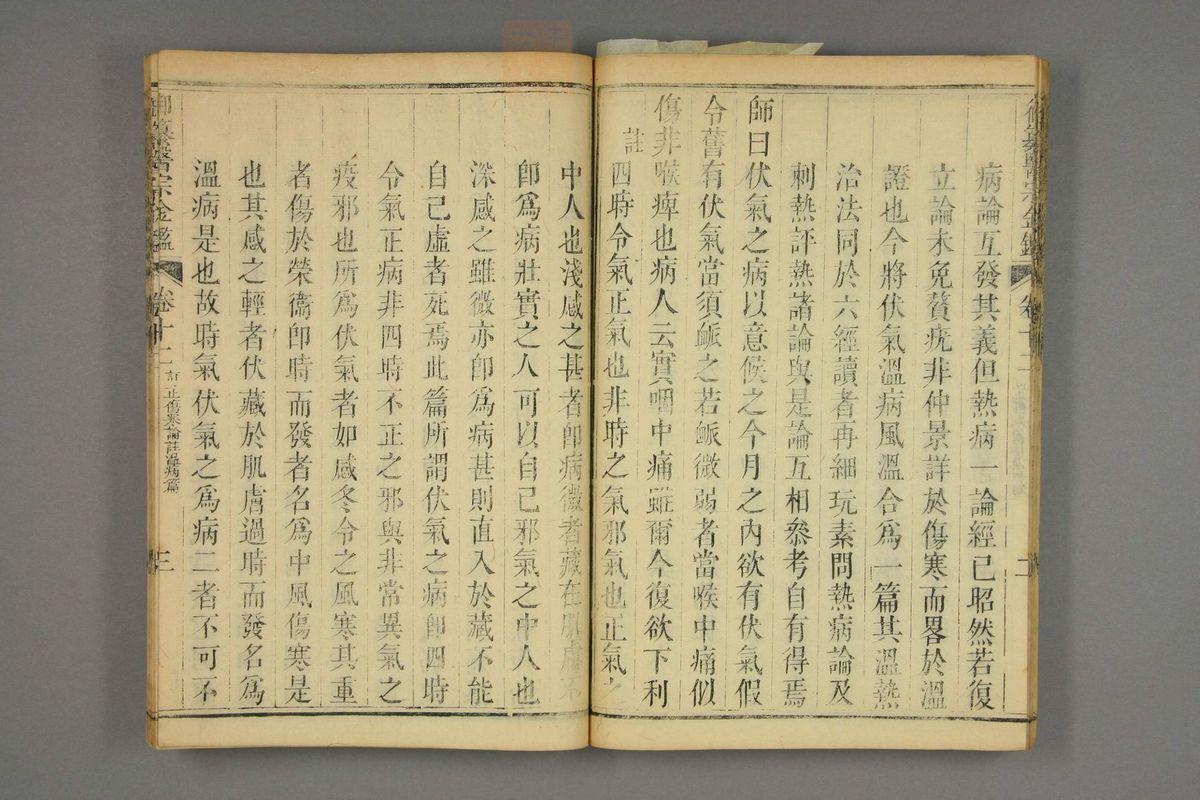 病論互發其義但熱病一論經已昭然若復
立論未免贅疣非仲景詳於傷寒而畧於溫
證也今將伏氣溫病風溫合爲一篇其溫熱
治法同於六經讀者再細玩素問熱病論及
刺熱評熱諸論與是論互相叅考自有得焉
師曰伏氣之病以意候之今月之內欲有伏氣假
令舊有伏氣當須䘑之若䘑微弱者當喉中痛似
傷非喉痺也病人云實咽中痛雖爾今復欲下利
註四時令氣正氣也非時之氣邪氣也正氣之
中人也淺感之甚者卽病微者藏在肌膚不
卽爲病壯實之人可以自已邪氣之中人也
深感之雖微亦卽爲病甚則直入於藏不能
自已虛者死焉此篇所謂伏氣之病卽四時
令氣正病非四時不正之邪與非常異氣之
疫邪也所爲伏氣者如感冬令之風寒其重
者傷於榮衞卽時而發者名爲中風傷寒是
也其感之輕者伏藏於肌膚過時而發名爲
溫病是也故時氣伏氣之爲病二者不可不
御纂醫宗金鑑 卷十二 訂正傷寒論註溫病篇 三